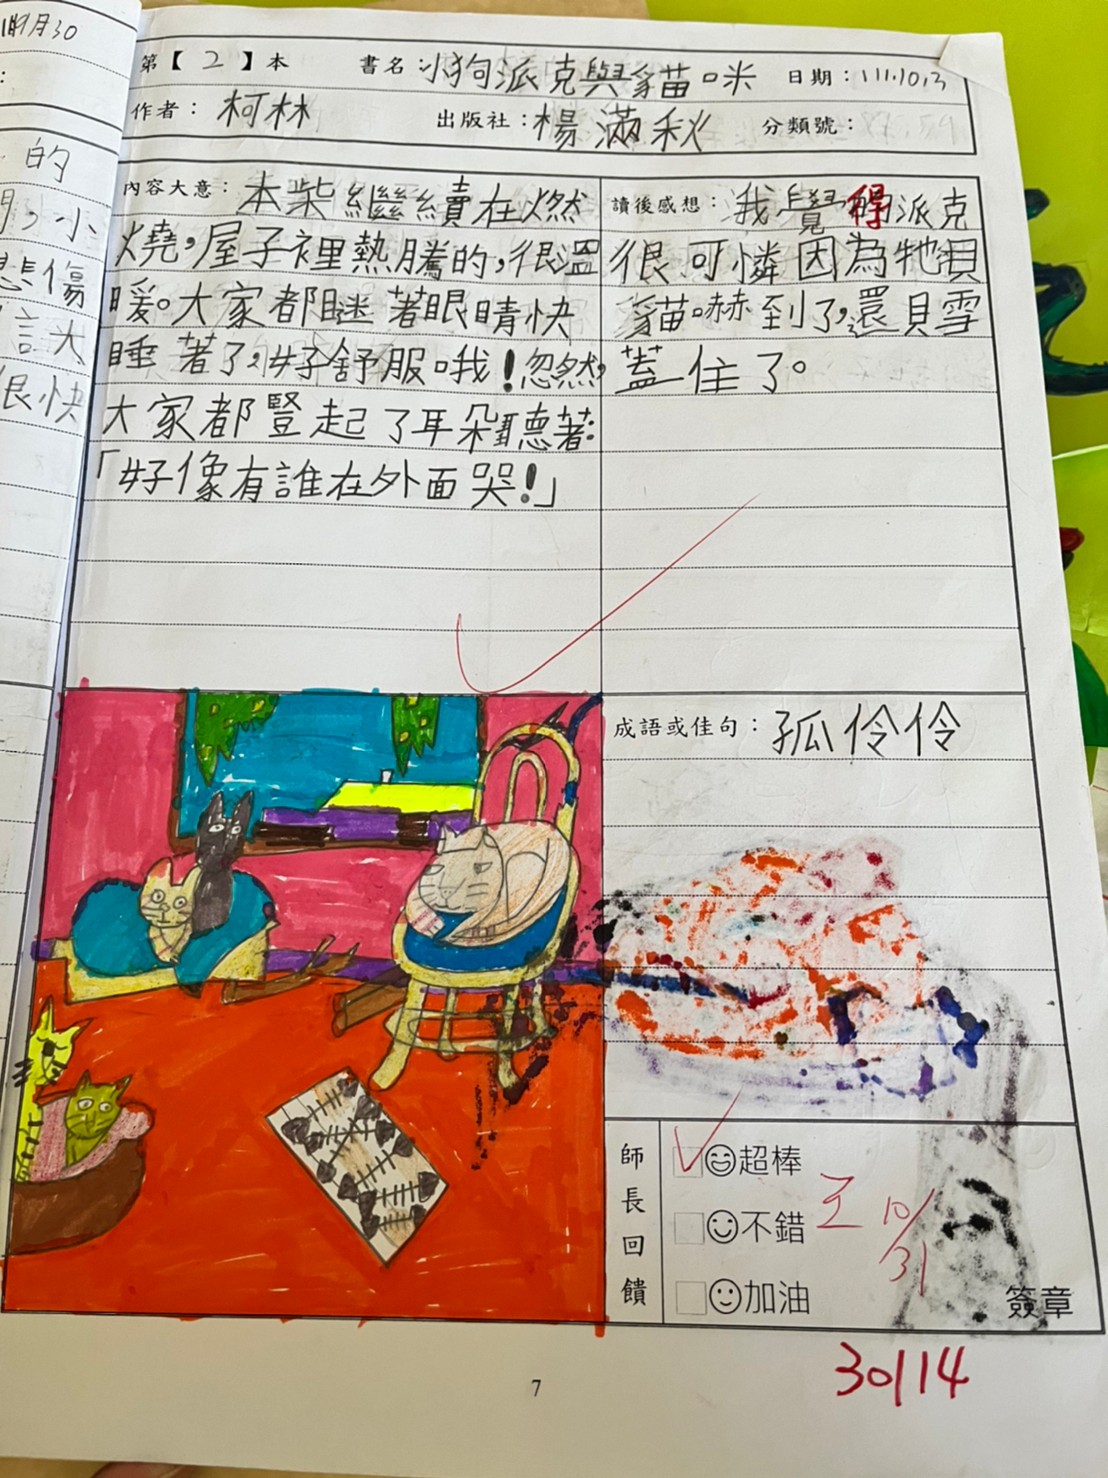 11月9月30
第【2】本 書名：小狗派克與貓咪 日期：111.10.3
作者：柯林 出版社：楊滿秋 分類號：
的
小
悲傷
言大
很快
內容大意：本柴繼續在燃
燒，屋子裡熱騰的，很溫
暖。大家都瞇著眼睛快
睡著了，好舒服哦！忽然，
大家都豎起了耳朵聽著：
「好像有誰在外面哭！」
讀後感想：我覺得派克
很可憐因為牠貝
貓嚇到了，還貝雪
蓋住了。
成語或佳句：孤伶伶
師長回饋
超棒
不錯
加油
王 10/31
簽章
30/14
7